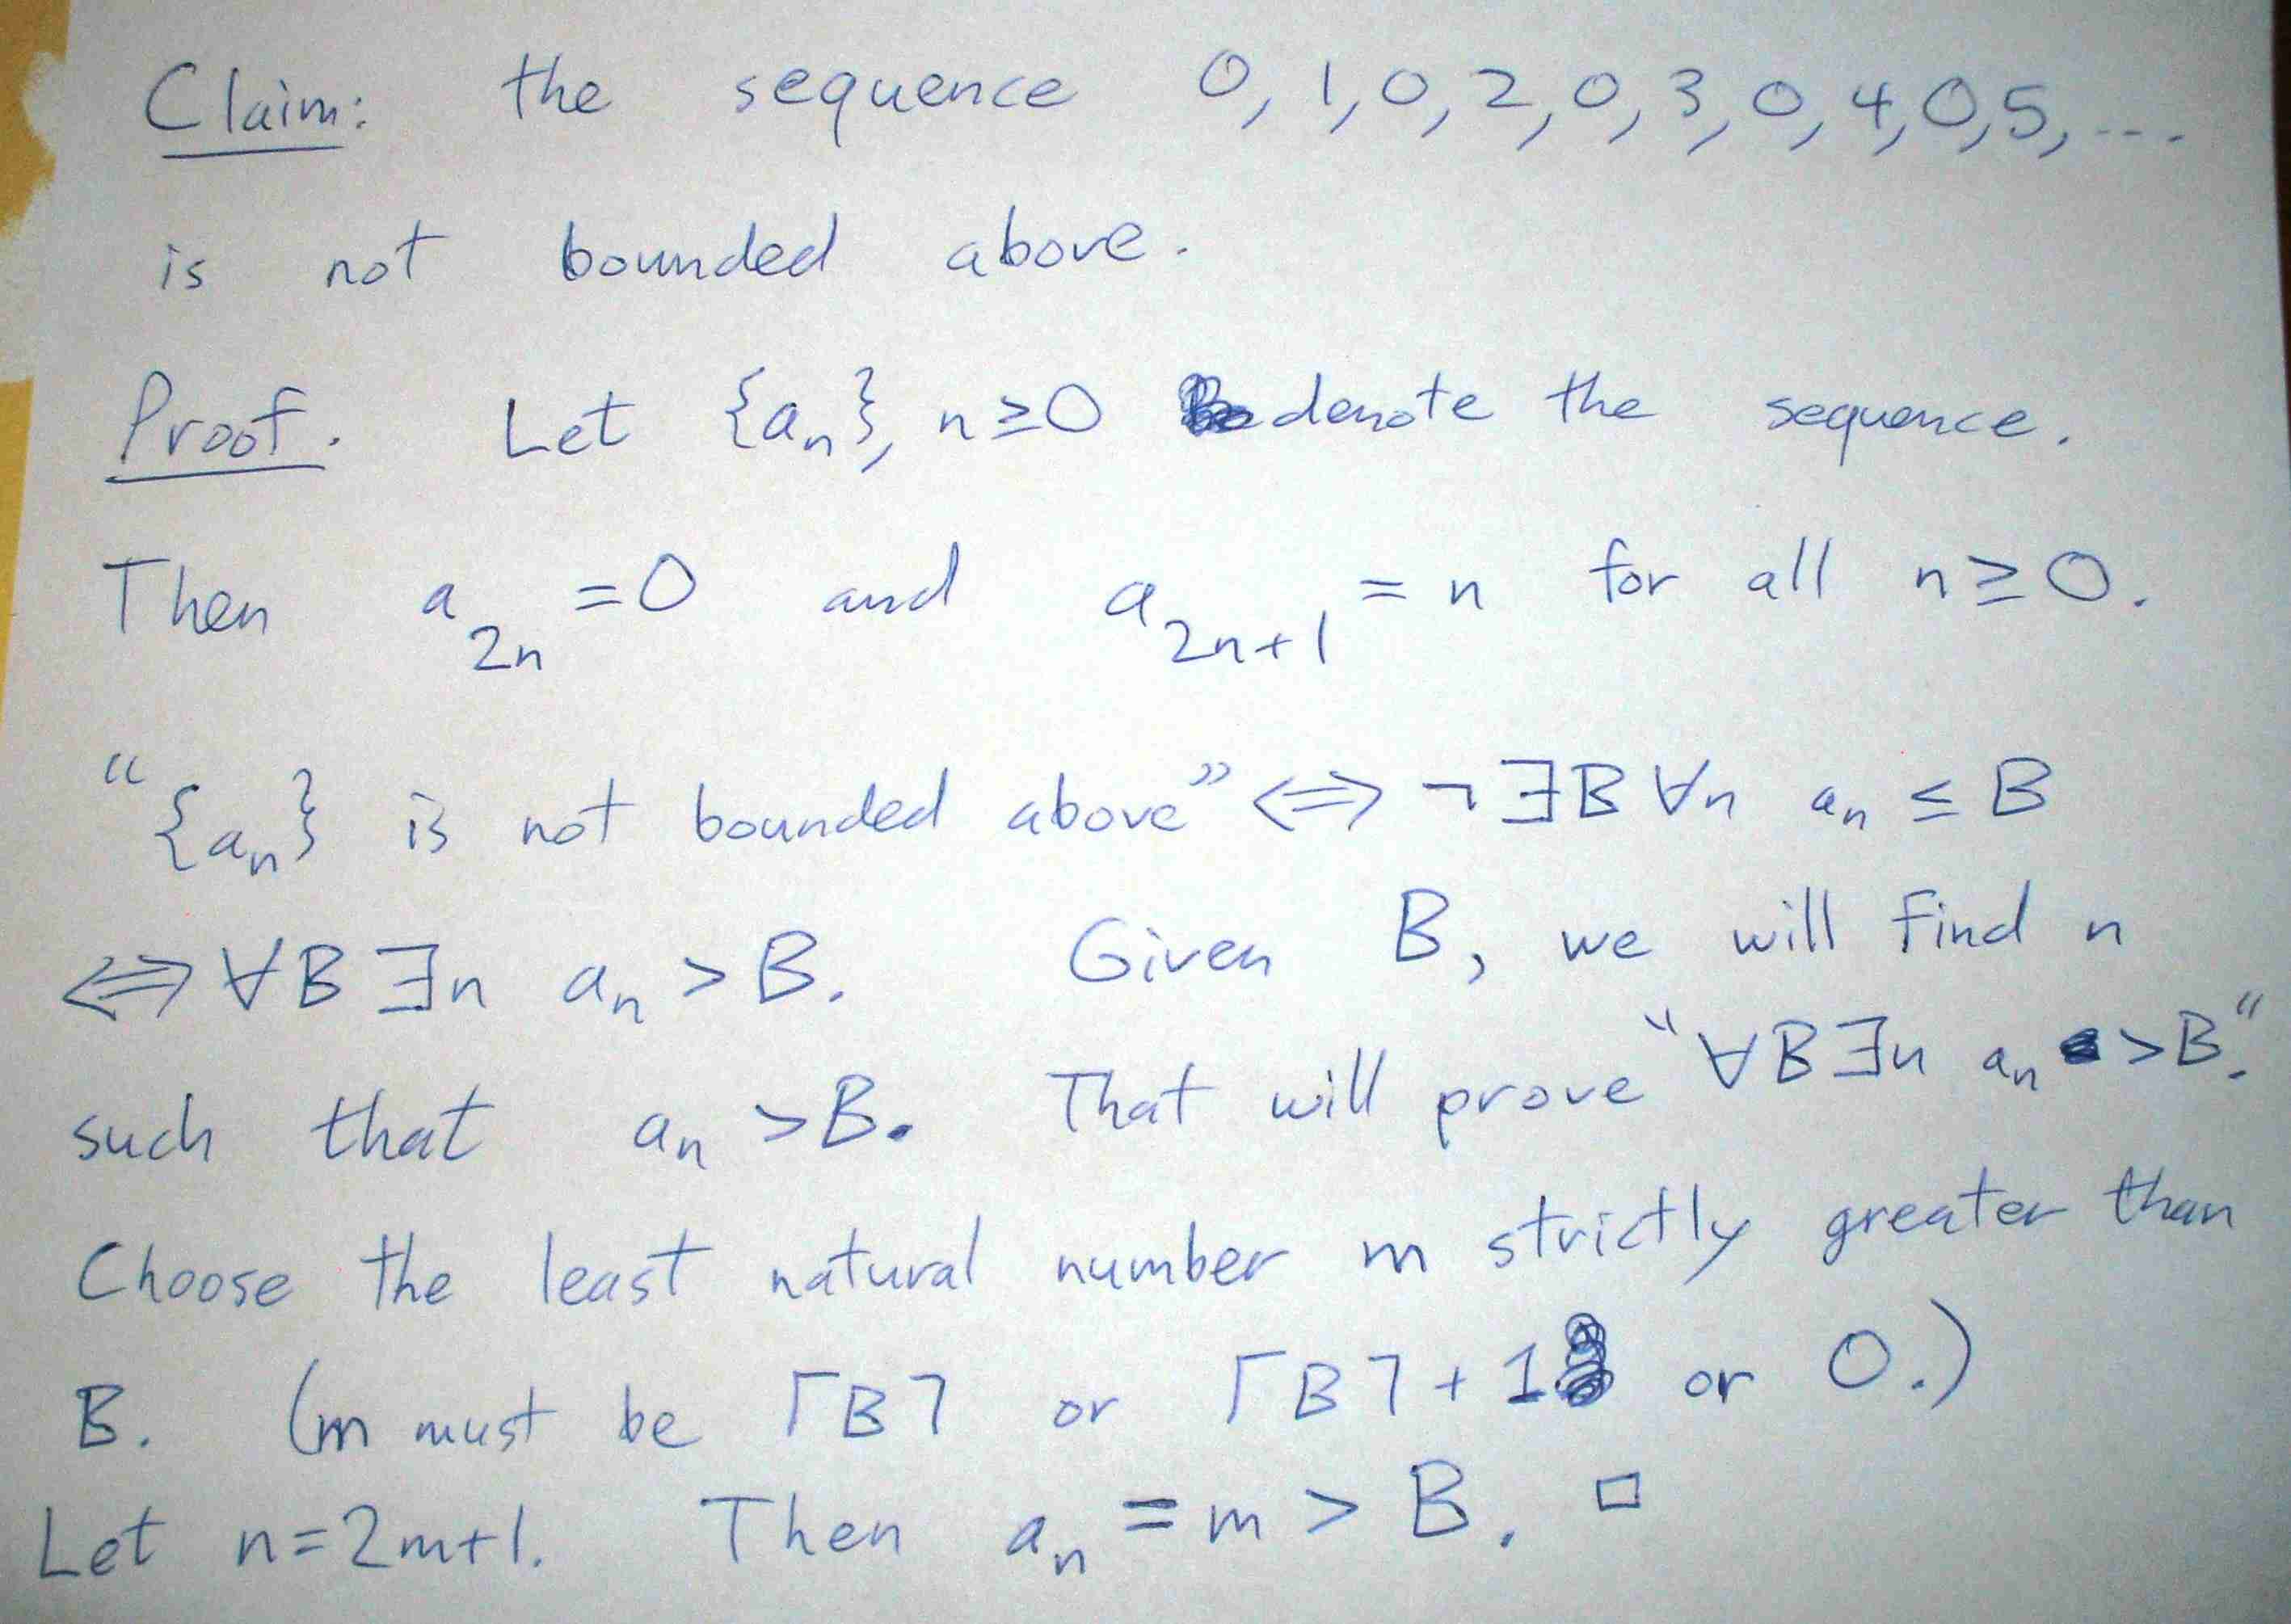 Claim: the sequence 0, 1, 0, 2, 0, 3, 0, 4, 0, 5, ...
is not bounded above.
Proof. Let {aₙ}, n≥0 denote the sequence.
Then a₂ₙ = 0 and a₂ₙ₊₁ = n for all n≥0.
“{aₙ} is not bounded above” ⟺ ¬∃B ∀n aₙ ≤ B
⟺ ∀B ∃n aₙ > B. Given B, we will find n
such that aₙ > B. That will prove “∀B ∃n aₙ > B.”
Choose the least natural number m strictly greater than
B. (m must be ⌈B⌉ or ⌈B⌉+1 or 0.)
Let n=2m+1. Then aₙ = m > B. □